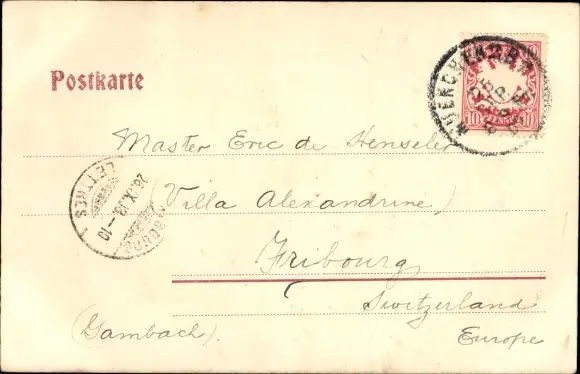 Postkarte
MUENCHEN 2 B.Z.
10 10
Master Eric de Henseler
(Villa Alexandrine)
Fribourg
Switzerland
(Gambach).
Europe
LETTRES